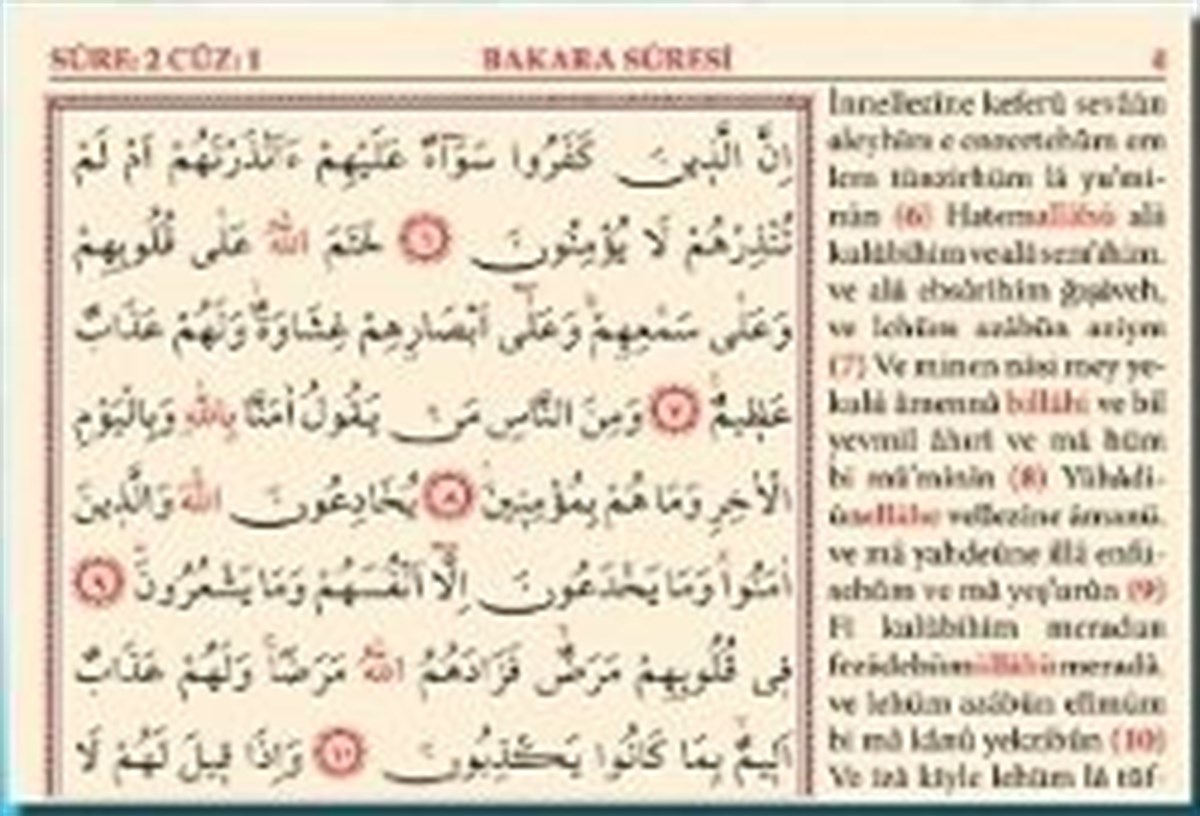 SÛRE: 2 CÜZ: 1 BAKARA SÛRESİ 4
اِنَّ الَّذ۪ينَ كَفَرُوا سَوَٓاءٌ عَلَيْهِمْ ءَاَنْذَرْتَهُمْ اَمْ لَمْ
تُنْذِرْهُمْ لَا يُؤْمِنُونَ ٦ خَتَمَ اللّٰهُ عَلٰى قُلُوبِهِمْ
وَعَلٰى سَمْعِهِمْۜ وَعَلٰٓى اَبْصَارِهِمْ غِشَاوَةٌۘ وَلَهُمْ عَذَابٌ
عَظ۪يمٌ۟ ٧ وَمِنَ النَّاسِ مَنْ يَقُولُ اٰمَنَّا بِاللّٰهِ وَبِالْيَوْمِ
الْاٰخِرِ وَمَا هُمْ بِمُؤْمِن۪ينَۢ ٨ يُخَادِعُونَ اللّٰهَ وَالَّذ۪ينَ
اٰمَنُواۚ وَمَا يَخْدَعُونَ اِلَّٓا اَنْفُسَهُمْ وَمَا يَشْعُرُونَۜ ٩
ف۪ي قُلُوبِهِمْ مَرَضٌۙ فَزَادَهُمُ اللّٰهُ مَرَضًاۚ وَلَهُمْ عَذَابٌ
اَل۪يمٌۙ بِمَا كَانُوا يَكْذِبُونَ ١٠ وَاِذَا ق۪يلَ لَهُمْ لَا
İnnellezine keferû sevâün
aleyhim e enzertehüm em
lem tünzirhüm lâ yu'mi-
nûn (6) Hatemallâhü alâ
kulûbihim ve alâ sem'ihim.
ve alâ ebsârihim ğışâveh,
ve lehüm azâbün aziym
(7) Ve minen nâsi mey ye-
kulü âmennâ billâhi ve bil
yevmil âhıri ve mâ hüm
bi mü'minîn (8) Yühâdi-
ûnellâhe vellezine âmenû.
ve mâ yahdeûne illâ enfü-
sehüm ve mâ yeş'urûn (9)
Fî kulûbihim meradun
fezâdehümüllâhü meradâ.
ve lehüm azâbün elîmüm
bi mâ kânû yekzibûn (10)
Ve izâ kiyle lehüm lâ tüf-